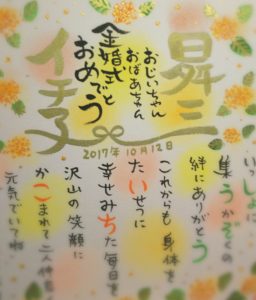 昇三
おじいちゃん
おばあちゃん
金婚式と
おめでう
イチ子
2017年10月12日
いっしょに
集うかぞくの
絆にありがとう
これからも身体を
たいせつに
幸せみちた毎日を
沢山の笑顔に
かこまれて二人仲良
元気でいてね